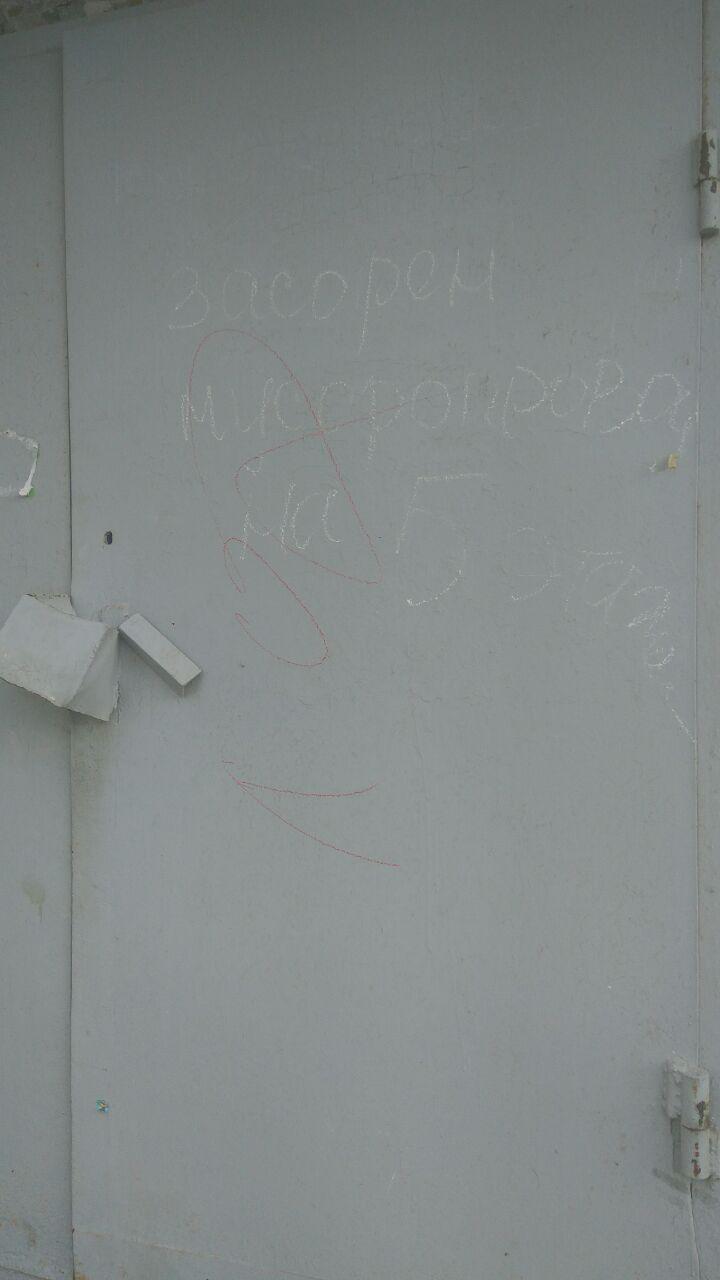 засорен
мусоропровод
на 5 этаже